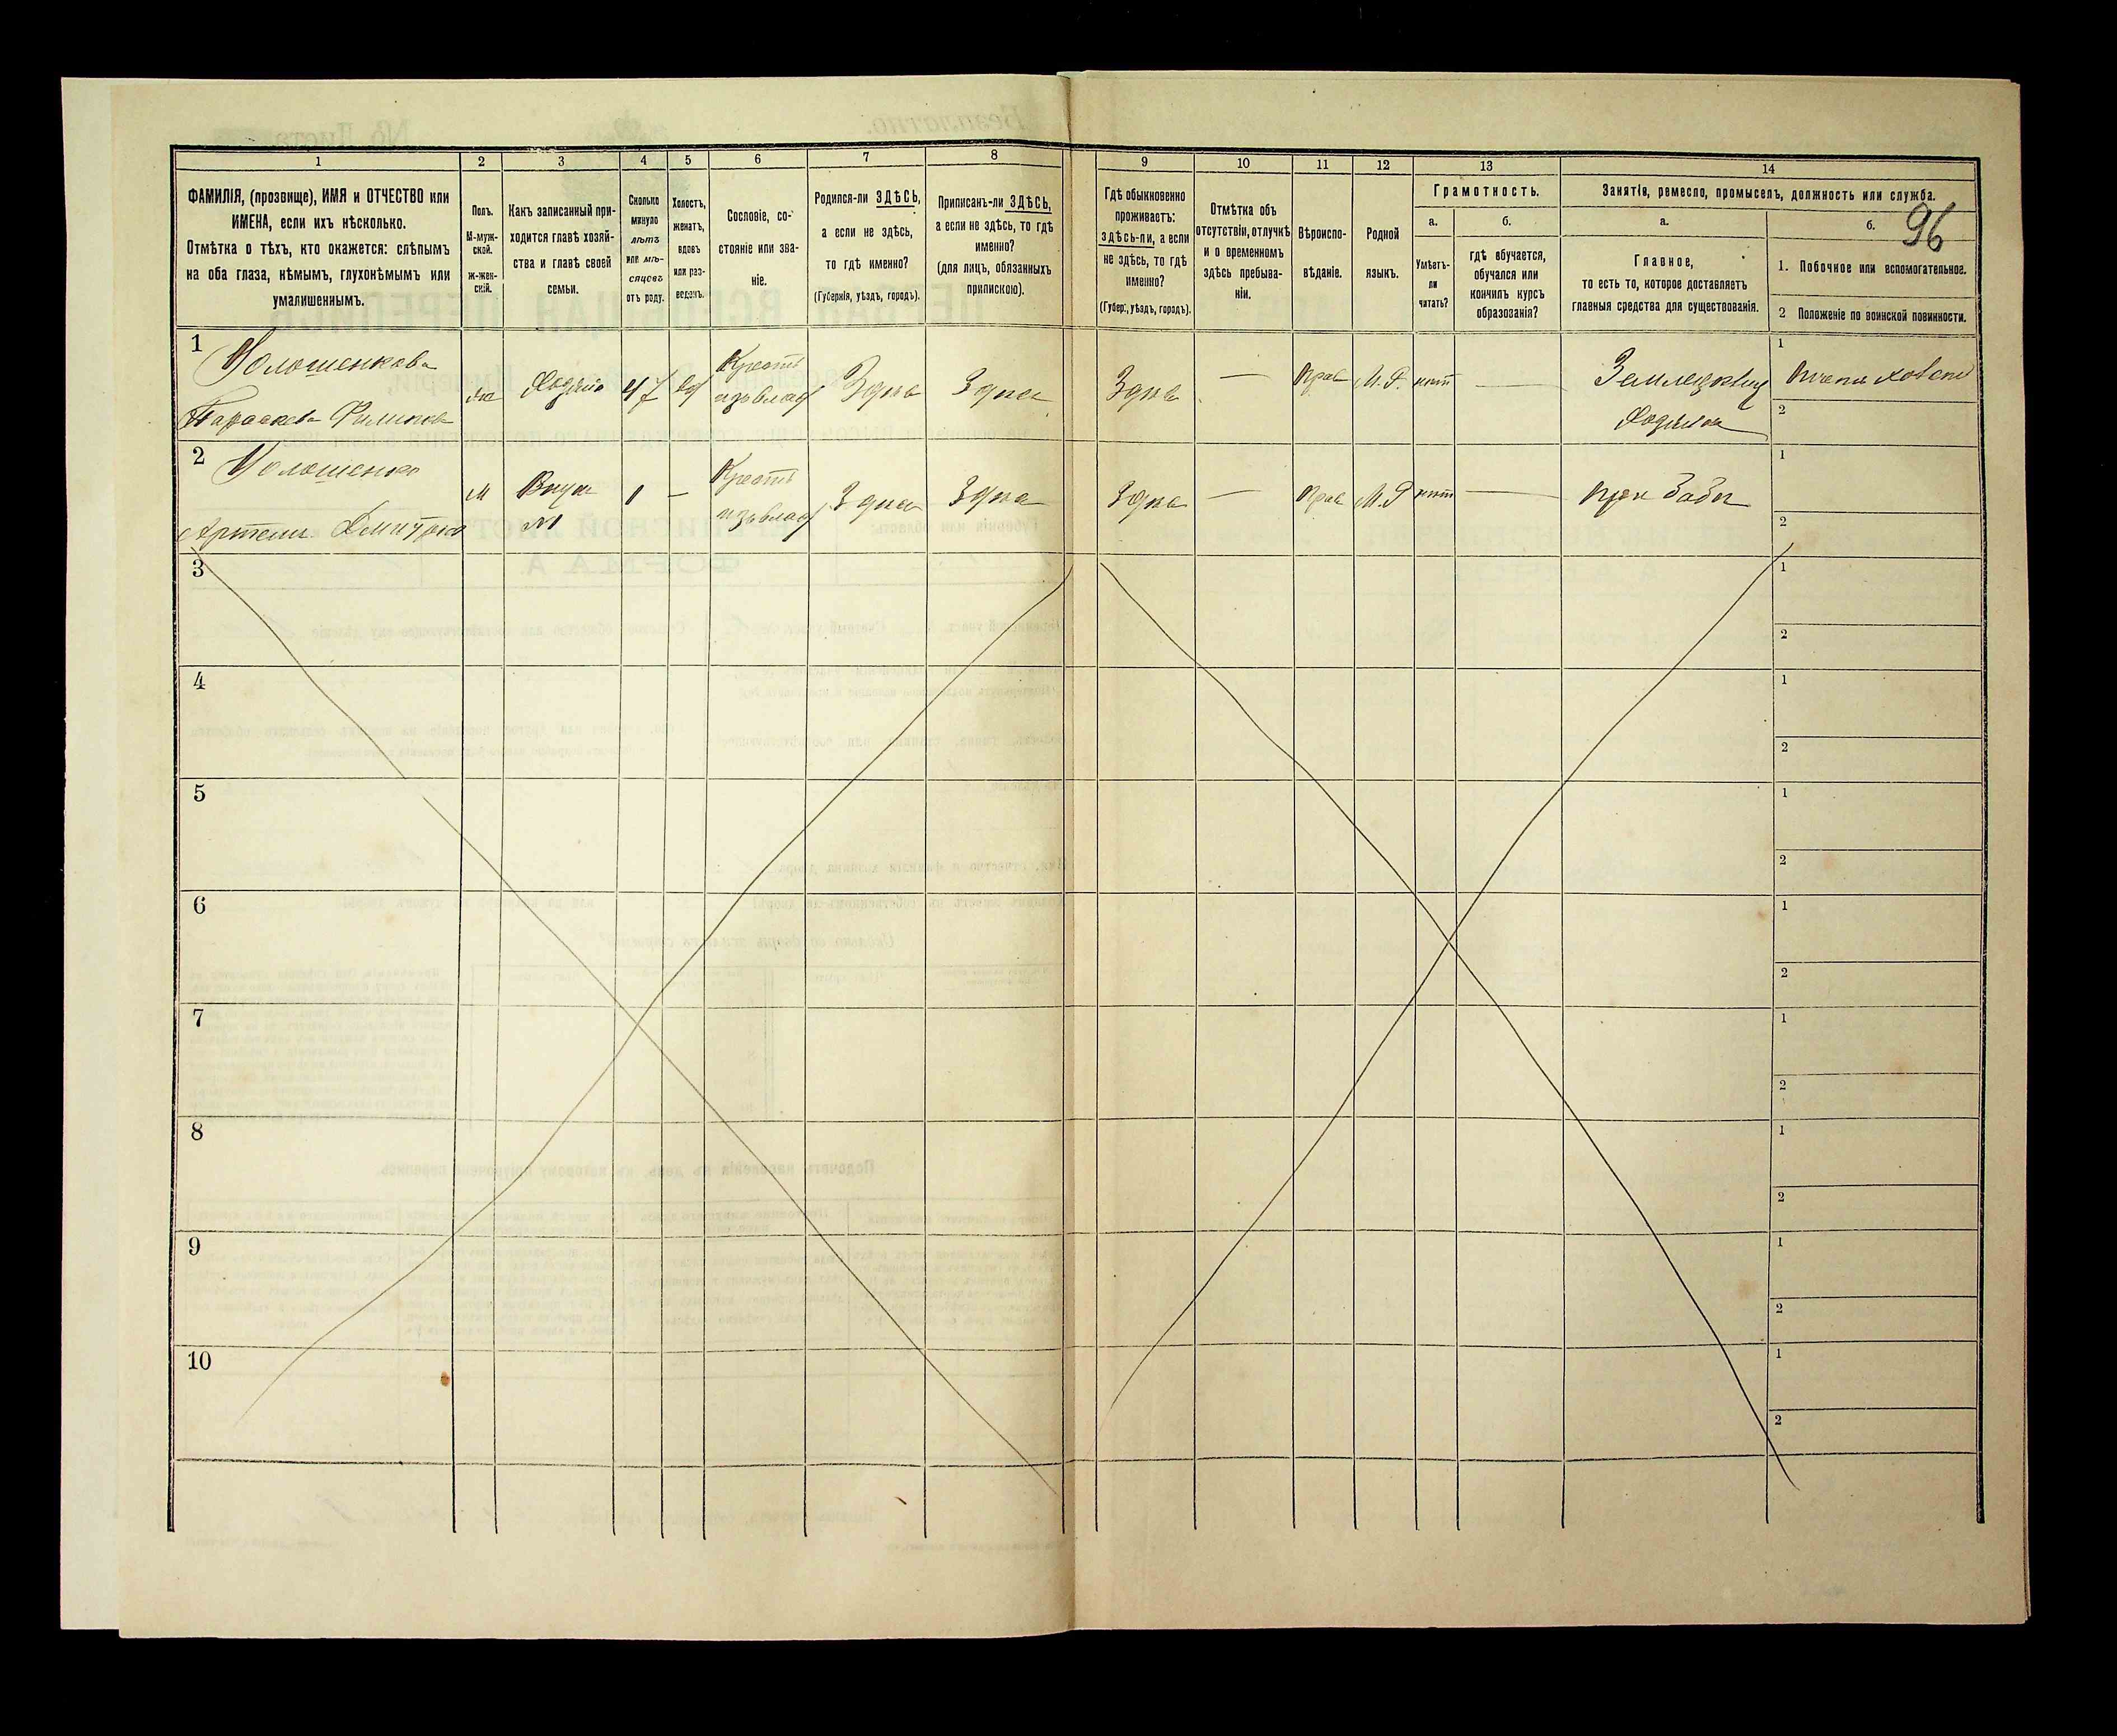 96
1
2
3
4
5
6
7
8
9
10
11
12
13
14
ФАМИЛІЯ, (прозвище), ИМЯ и ОТЧЕСТВО или
ИМЕНА, если ихъ нѣсколько.
Отмѣтка о тѣхъ, кто окажется: слѣпымъ
на оба глаза, нѣмымъ, глухонѣмымъ или
умалишеннымъ.
Полъ.
М-муж-
ской.
ж-жен-
скій.
Какъ записанный при-
ходится главѣ хозяй-
ства и главѣ своей
семьи.
Сколько
минуло
лѣтъ
или мѣ-
сяцевъ
отъ роду.
Холостъ,
женатъ,
вдовъ
или раз-
веденъ.
Сословіе, со-
стояніе или зва-
ніе.
Родился-ли ЗДѢСЬ,
а если не здѣсь,
то гдѣ именно?
(Губернія, уѣздъ, городъ).
Приписанъ-ли ЗДѢСЬ,
а если не здѣсь, то гдѣ
именно?
(для лицъ, обязанныхъ
припискою).
Гдѣ обыкновенно
проживаетъ:
здѣсь-ли, а если
не здѣсь, то гдѣ
именно?
(Губер., уѣздъ, городъ).
Отмѣтка объ
отсутствіи, отлучкѣ
и о временномъ
здѣсь пребыва-
ніи.
Вѣроиспо-
вѣданіе.
Родной
языкъ.
Грамотность.
а.
Умѣетъ-
ли
читать?
б.
гдѣ обучается,
обучался или
кончилъ курсъ
образованія?
Занятія, ремесло, промыселъ, должность или служба.
а.
Главное,
то есть то, которое доставляетъ
главныя средства для существованія.
б.
1. Побочное или вспомогательное.
2 Положеніе по воинской повинности.
1
Волошенкова
Параскева Филипова
ж
Хозяйка
47
вд
Крест
изъ влад
Здѣсь
Здѣсь
Здѣсь
—
прав
М.Р.
нѣт
—
Земледѣлец
Хозяйка
1
2
2
Волошенко
Артем Дмитров
м
Внук
№1
1
—
Крест
изъ влад
Здѣсь
Здѣсь
Здѣсь
—
прав
М.Р
нѣт
—
при бабѣ
1
2
3
1
2
4
1
2
5
1
2
6
1
2
7
1
2
8
1
2
9
1
2
10
1
2